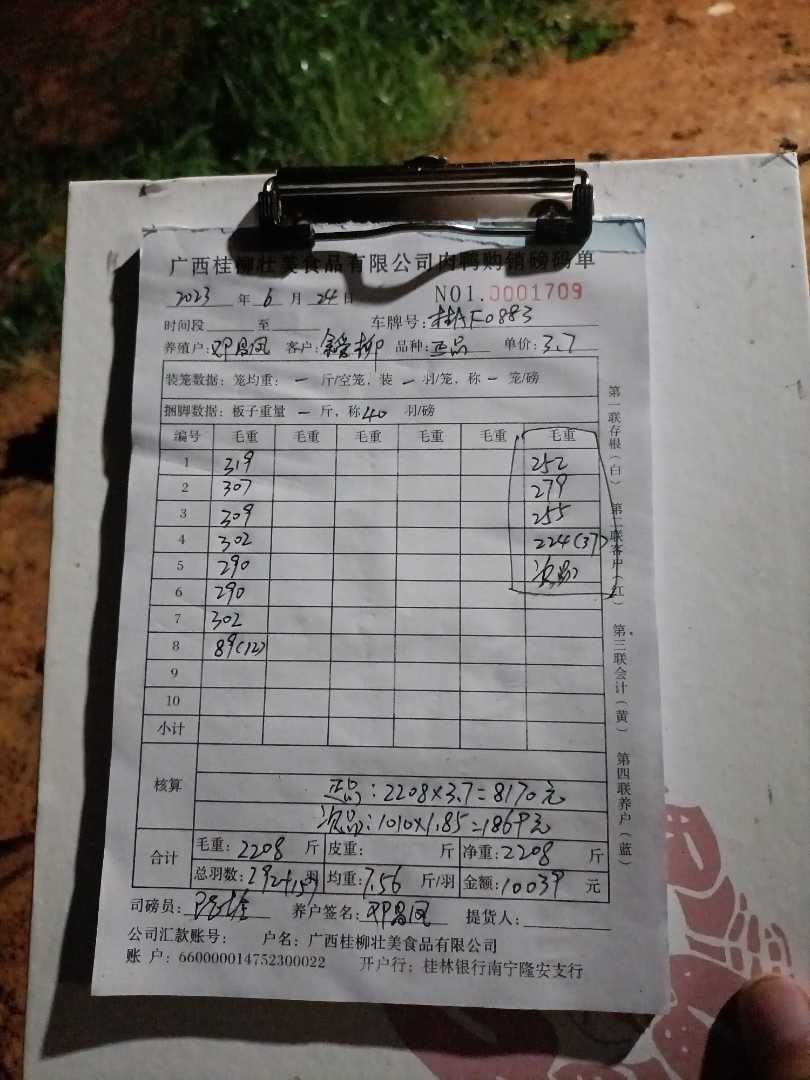 广西桂柳壮美食品有限公司肉鸭购销磅码单
2023 年 6 月 24 日 NO1.0001709
时间段 至 车牌号: F0883
养殖户:邓昌凤 客户: 柳 品种:正品 单价:3.7
装笼数据: 笼均重: 一 斤/空笼, 装 一 羽/笼, 称 一 笼/磅
捆脚数据: 板子重量 一 斤, 称 40 羽/磅
编号 毛重 毛重 毛重 毛重 毛重 毛重
1 319 252
2 307 279
3 309 255
4 302 224(37)
5 290 次品
6 290
7 302
8 89(12)
9
10
小计
核算
正品:2208×3.7=8170元
次品:1010×1.85=1869元
合计
毛重: 2208 斤 皮重: 斤 净重:2208 斤
总羽数:292+157 羽 均重:7.56 斤/羽 金额:10039 元
司磅员: 养户签名: 邓昌凤 提货人:
公司汇款账号: 户名: 广西桂柳壮美食品有限公司
账 户: 660000014752300022 开户行: 桂林银行南宁隆安支行
第一联存根(白) 第二联客户(红) 第三联会计(黄) 第四联养户(蓝)